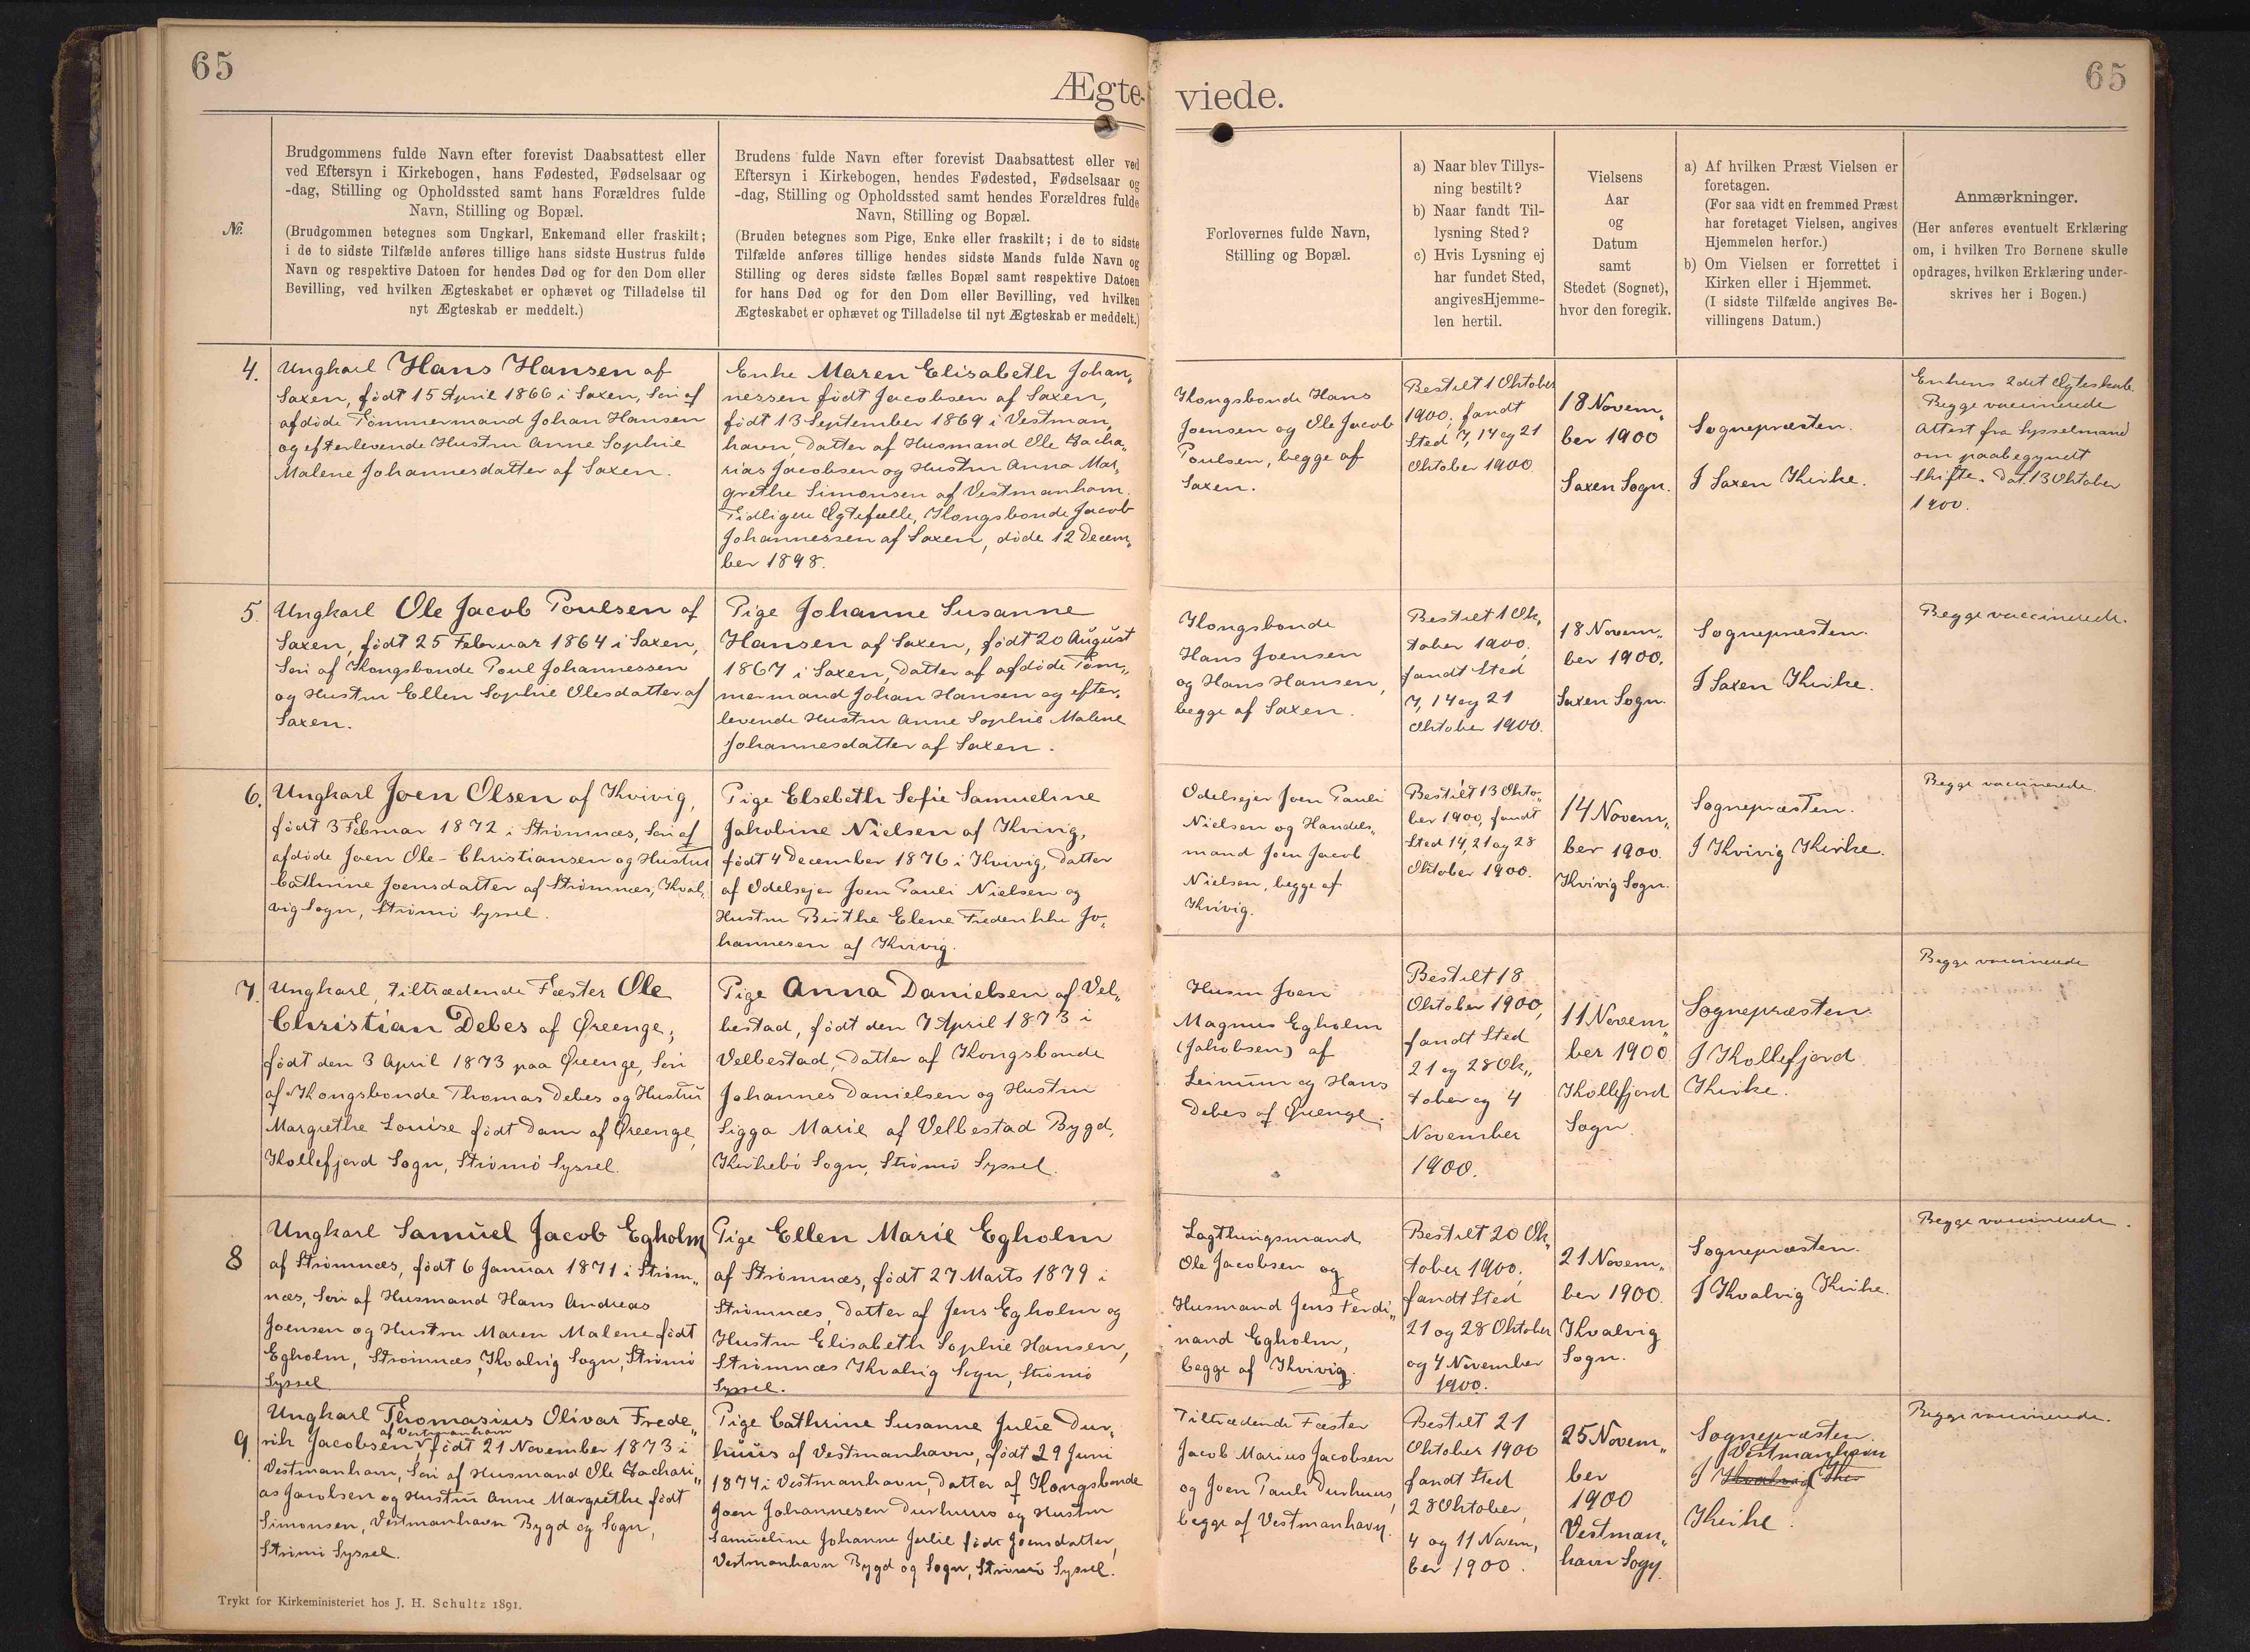 65
65
Ægte-
viede.
№.
Brudgommens fulde Navn efter forevist Daabsattest eller
ved Eftersyn i Kirkebogen, hans Fødested, Fødselsaar og
-dag, Stilling og Opholdssted samt hans Forældres fulde
Navn, Stilling og Bopæl.
(Brudgommen betegnes som Ungkarl, Enkemand eller fraskilt;
i de to sidste Tilfælde anføres tillige hans sidste Hustrus fulde
Navn og respektive Datoen for hendes Død og for den Dom eller
Bevilling, ved hvilken Ægteskabet er ophævet og Tilladelse til
nyt Ægteskab er meddelt.)
Brudens fulde Navn efter forevist Daabsattest eller ved
Eftersyn i Kirkebogen, hendes Fødested, Fødselsaar og
-dag, Stilling og Opholdssted samt hendes Forældres fulde
Navn, Stilling og Bopæl.
(Bruden betegnes som Pige, Enke eller fraskilt; i de to sidste
Tilfælde anføres tillige hendes sidste Mands fulde Navn og
Stilling og deres sidste fælles Bopæl samt respektive Datoen
for hans Død og for den Dom eller Bevilling, ved hvilken
Ægteskabet er ophævet og Tilladelse til nyt Ægteskab er meddelt.)
Forlovernes fulde Navn,
Stilling og Bopæl.
a) Naar blev Tillys-
ning bestilt?
b) Naar fandt Til-
lysning Sted?
c) Hvis Lysning ej
har fundet Sted,
angives Hjemme-
len hertil.
Vielsens
Aar
og
Datum
samt
Stedet (Sognet),
hvor den foregik.
a) Af hvilken Præst Vielsen er
foretagen.
(For saa vidt en fremmed Præst
har foretaget Vielsen, angives
Hjemmelen herfor.)
b) Om Vielsen er forrettet i
Kirken eller i Hjemmet.
(I sidste Tilfælde angives Be-
villingens Datum.)
Anmærkninger.
(Her anføres eventuelt Erklæring
om, i hvilken Tro Børnene skulle
opdrages, hvilken Erklæring under-
skrives her i Bogen.)
4.
Ungkarl Hans Hansen af
Saxen, født 15 April 1866 i Saxen, Søn af
afdøde Tømmermand Johan Hansen
og efterlevende Hustru Anne Sophie
Malene Johannesdatter af Saxen.
Enke Maren Elisabeth Johan„
nessen født Jacobsen af Saxen,
født 13 September 1869 i Vestman„
havn, Datter af Husmand Ole Zacha„
rias Jacobsen og Hustru Anna Mar„
grethe Simonsen af Vestmanhavn.
Tidligere Ægtefælle, Kongsbonde Jacob
Johannessen af Saxen, døde 12 Decem„
ber 1898.
Kongsbonde Hans
Joensen og Ole Jacob
Poulsen, begge af
Saxen.
Bestilt 1 Oktober
1900; fandt
Sted 7, 14 og 21
Oktober 1900.
18 Novem„
ber 1900
Saxen Sogn.
Sognepræsten.
I Saxen Kirke.
Enkens 2det Ægteskab.
Begge vaccinerede
Attest fra Sysselmand
om paabegyndt
Skifte. Dat. 13 Oktober
1900.
5.
Ungkarl Ole Jacob Poulsen af
Saxen, født 25 Februar 1864 i Saxen,
Søn af Kongsbonde Poul Johannessen
og Hustru Ellen Sophie Olesdatter af
Saxen.
Pige Johanne Susanne
Hansen af Saxen, født 20 August
1867 i Saxen, Datter af afdøde Tøm„
mermand Johan Hansen og efter„
levende Hustru Anne Sophie Malene
Johannesdatter af Saxen.
Kongsbonde
Hans Joensen
og Hans Hansen,
begge af Saxen.
Bestilt 1 Ok„
tober 1900,
fandt Sted
7, 14 og 21
Oktober 1900.
18 Novem„
ber 1900.
Saxen Sogn.
Sognepræsten.
I Saxen Kirke.
Begge vaccinerede.
6.
Ungkarl Joen Olsen af Kvivig,
født 3 Februar 1872 i Strømnæs, Søn af
afdøde Joen Ole-Christiansen og Hustru
Cathrine Joensdatter af Strømnæs, Kval„
vig Sogn, Strømø Syssel.
Pige Elsebeth Sofie Samueline
Jakobine Nielsen af Kvivig,
født 4 December 1876 i Kvivig, Datter
af Odelsejer Joen Pauli Nielsen og
Hustru Birthe Elene Frederikke Jo„
hannesen af Kvivig.
Odelsejer Joen Pauli
Nielsen og Handels„
mand Joen Jacob
Nielsen, begge af
Kvivig.
Bestilt 13 Okto„
ber 1900, fandt
Sted 14, 21 og 28
Oktober 1900.
14 Novem„
ber 1900.
Kvivig Sogn.
Sognepræsten.
I Kvivig Kirke.
Begge vaccinerede.
7.
Ungkarl, tiltrædende Fæster Ole
Christian Debes af Øreenge,
født den 3 April 1873 paa Øreenge, Søn
af Kongsbonde Thomas Debes og Hustru
Margrethe Louise født Dam af Øreenge,
Kollefjord Sogn, Strømø Syssel.
Pige Anna Danielsen af Vel„
bestad, født den 7 April 1873 i
Velbestad, Datter af Kongsbonde
Johannes Danielsen og Hustru
Sigga Marie af Velbestad Bygd,
Kirkebø Sogn, Strømø Syssel.
Husm Joen
Magnus Egholm
(Jakobsen) af
Leinum og Hans
Debes af Øreenge.
Bestilt 18
Oktober 1900,
fandt Sted
21 og 28 Ok„
tober og 4
November
1900.
11 Novem„
ber 1900
Kollefjord
Sogn.
Sognepræsten.
I Kollefjord
Kirke.
Begge vaccinerede
8
Ungkarl Samuel Jacob Egholm
af Strømnæs, født 6 Januar 1871 i Strøm„
næs, Søn af Husmand Hans Andreas
Joensen og Hustru Maren Malene født
Egholm, Strømnæs, Kvalvig Sogn, Strømø
Syssel
Pige Ellen Marie Egholm
af Strømnæs, født 27 Marts 1879 i
Strømnæs, Datter af Jens Egholm og
Hustru Elisabeth Sophie Hansen,
Strømnæs Kvalvig Sogn, Strømø
Syssel.
Lagthingsmand
Ole Jacobsen og
Husmand Jens Ferdi„
nand Egholm,
begge af Kvivig.
Bestilt 20 Ok„
tober 1900,
fandt Sted
21 og 28 Oktober
og 4 November
1900.
21 Novem„
ber 1900.
Kvalvig
Sogn.
Sognepræsten.
I Kvalvig Kirke.
Begge vaccinerede.
9.
Ungkarl Thomasius Olivar Frede„
af Vestmanhavn
rik Jacobsen født 21 November 1873 i
Vestmanhavn, Søn af Husmand Ole Zachari„
as Jacobsen og Hustru Anne Margrethe født
Simonsen, Vestmanhavn Bygd og Sogn,
Strømø Syssel.
Pige Cathrine Susanne Julie Dur„
huus af Vestmanhavn, født 29 Juni
1874 i Vestmanhavn, Datter af Kongsbonde
Joen Johannesen Durhuus og Hustru
Samueline Johanne Julie født Joensdatter,
Vestmanhavn Bygd og Sogn, Strømø Syssel.
Tiltrædende Fæster
Jacob Marius Jacobsen
og Joen Pauli Durhuus,
begge af Vestmanhavn.
Bestilt 21
Oktober 1900
fandt Sted
28 Oktober,
4 og 11 Novem„
ber 1900.
25 Novem„
ber
1900
Vestman„
havn Sogn.
Sognepræsten.
Vestmanhavn
I Kvalvig Kir
Kirke.
Begge vaccinerede.
Trykt for Kirkeministeriet hos J. H. Schultz 1891.